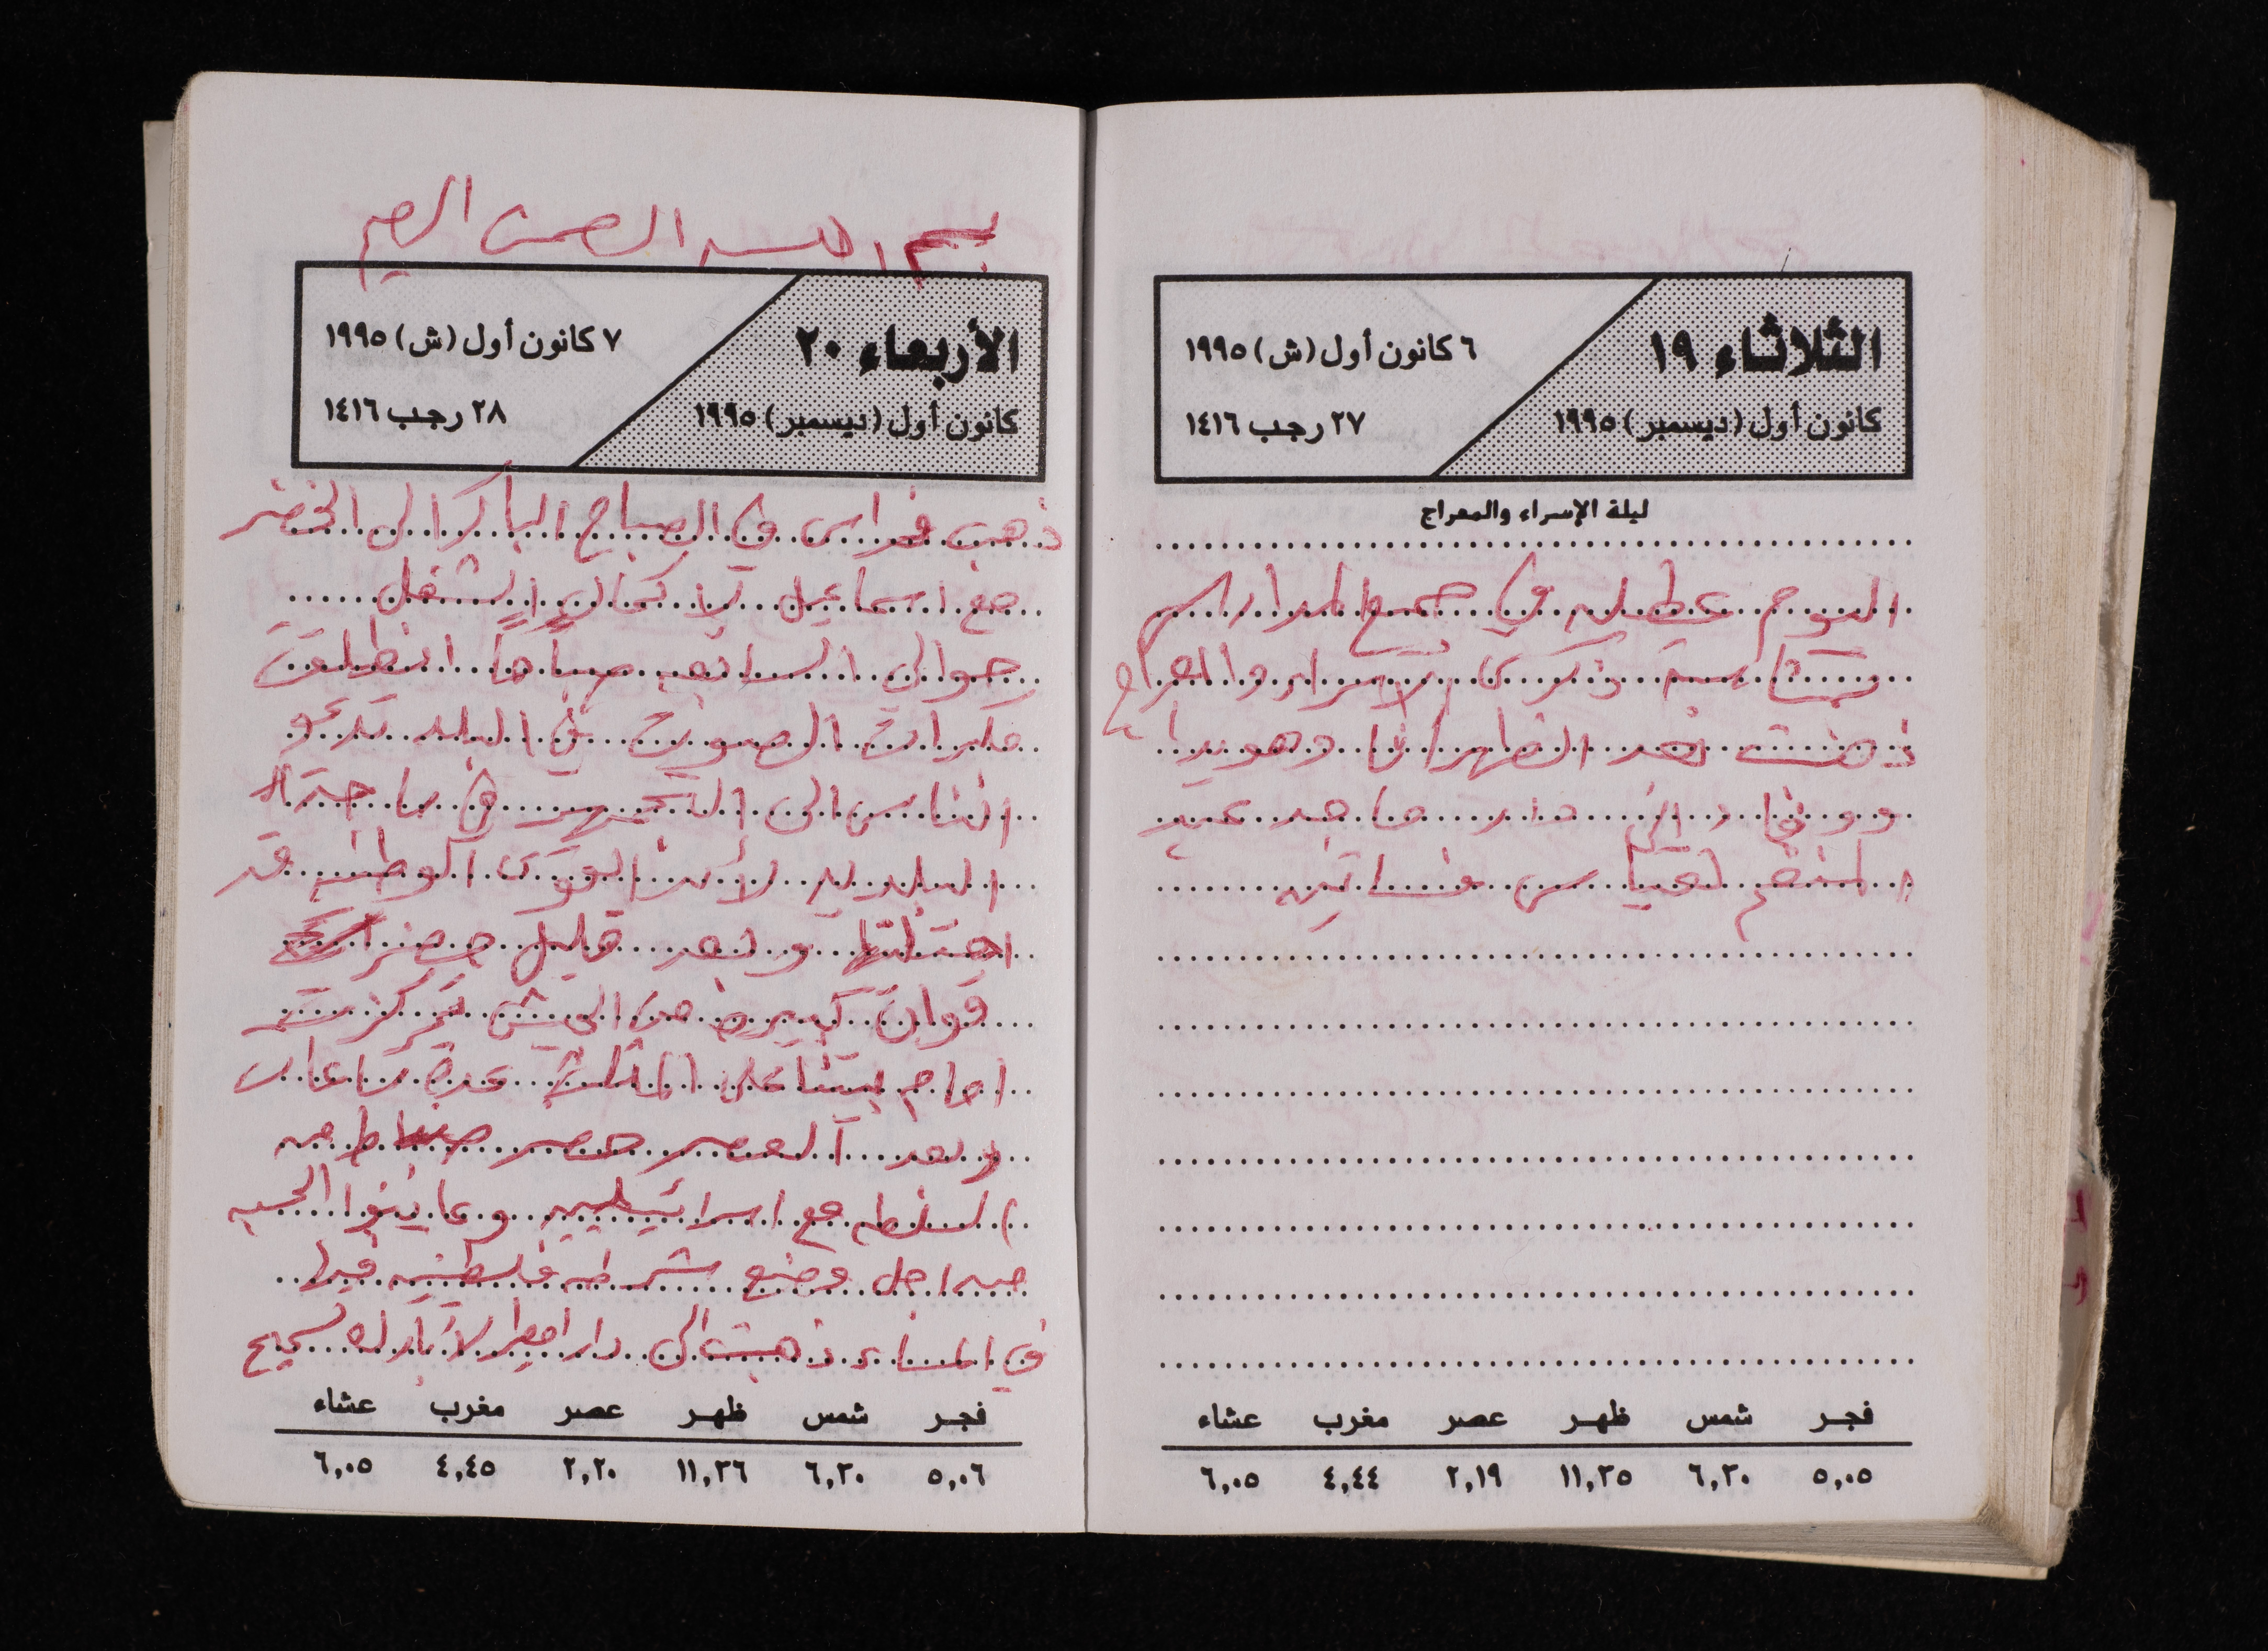 الثلاثاء ١٩
كانون أول (ديسمبر) ١٩٩٥
٦ كانون أول (ش) ١٩٩٥
٢٧ رجب ١٤١٦
ليلة الإسراء والمعراج
اليوم عطله في جميع المدارس
بمناسبة ذكرى الاسراء والمعراج
ذهبت بعد الظهر انا وهويدا
الى دار ماجد عبد
المنعم لقياس فساتين
فجر شمس ظهر عصر مغرب عشاء
٥,٠٥ ٦,٣٠ ١١,٣٥ ٢,١٩ ٤,٤٤ ٦,٠٥
بسم الله الرحمن الرحيم
الأربعاء ٢٠
كانون أول (ديسمبر) ١٩٩٥
٧ كانون أول (ش) ١٩٩٥
٢٨ رجب ١٤١٦
ذهب فراس في الصباح الباكر الى الخضر
مع اسماعيل لاكمال الشغل
حوالي الساعه صباحاً انطلقت
مكبرات الصوت في البلد تدعو
الناس الى في ساحة
البلديه لأن القوى الوطنيه قد
احتلتها وبعد قليل حضر
قوات كبيره من الجيش تمركزت
امام بيتنا على المثلث عدة ساعات
وبعد العصر حضر ضباط من
السلطه مع اسرائيليين وعاينوا الحسبه
من اجل وضع شرطه فلسطينيه فيها
في المساء ذهبت الى دار سميح
فجر شمس ظهر عصر مغرب عشاء
٥,٠٦ ٦,٣٠ ١١,٣٦ ٢,٢٠ ٤,٤٥ ٦,٠٥